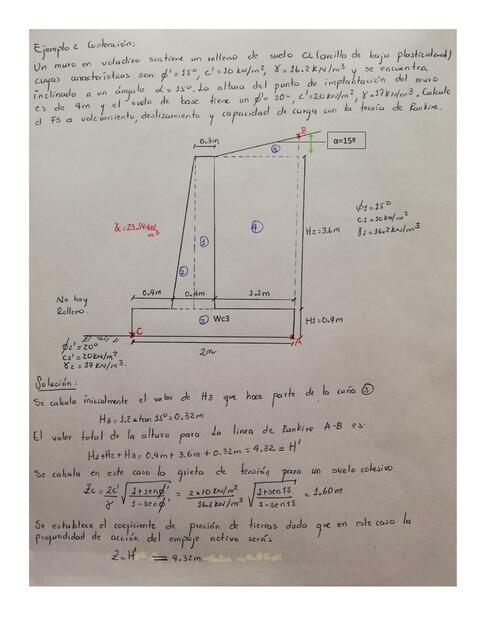 Ejemplo 2 Contención:
Un muro en voladizo sostiene un relleno de suelo CL (arcilla de baja plasticidad)
cuyas características son: φ' = 15°, c' = 10 kN/m², γ = 16.2 kN/m³ y se encuentra
inclinado a un ángulo α = 15°. La altura del punto de implantación del muro
es de 4m y el suelo de base tiene un φ' = 20°, c' = 20 kN/m², γ = 17 kN/m³. Calcule
el FS a volcamiento, deslizamiento y capacidad de carga con la teoría de Rankine.
B
0.3m
α=15º
5
φ1 = 15°
c1 = 10 kN/m²
γ1 = 16.2 kN/m³
γc = 23.58 kN/m³
H2 = 3.6m
1
4
2
0.4m
0.4m
1.2m
No hay
Relleno.
3
Wc3
H1 = 0.4m
C
A
2m
φ2' = 20°
c2' = 20 kN/m²
γ2 = 17 kN/m³.
Solución:
Se calcula inicialmente el valor de H3 que hace parte de la cuña 5
H3 = 1.2 x tan 15° = 0.32m
El valor total de la altura para la línea de Rankine A-B es:
H1 + H2 + H3 = 0.4m + 3.6m + 0.32m = 4.32 = H'
Se calcula en este caso la grieta de tensión para un suelo cohesivo.
Zc = 2c'/γ √(1+senφ'/1-senφ') = 2x10 kN/m²/16.2 kN/m³ √(1+sen15/1-sen15) = 1.60m
Se establece el coeficiente de presión de tierras dado que en este caso la
profundidad de acción del empuje activo será:
Z = H' = 4.32m